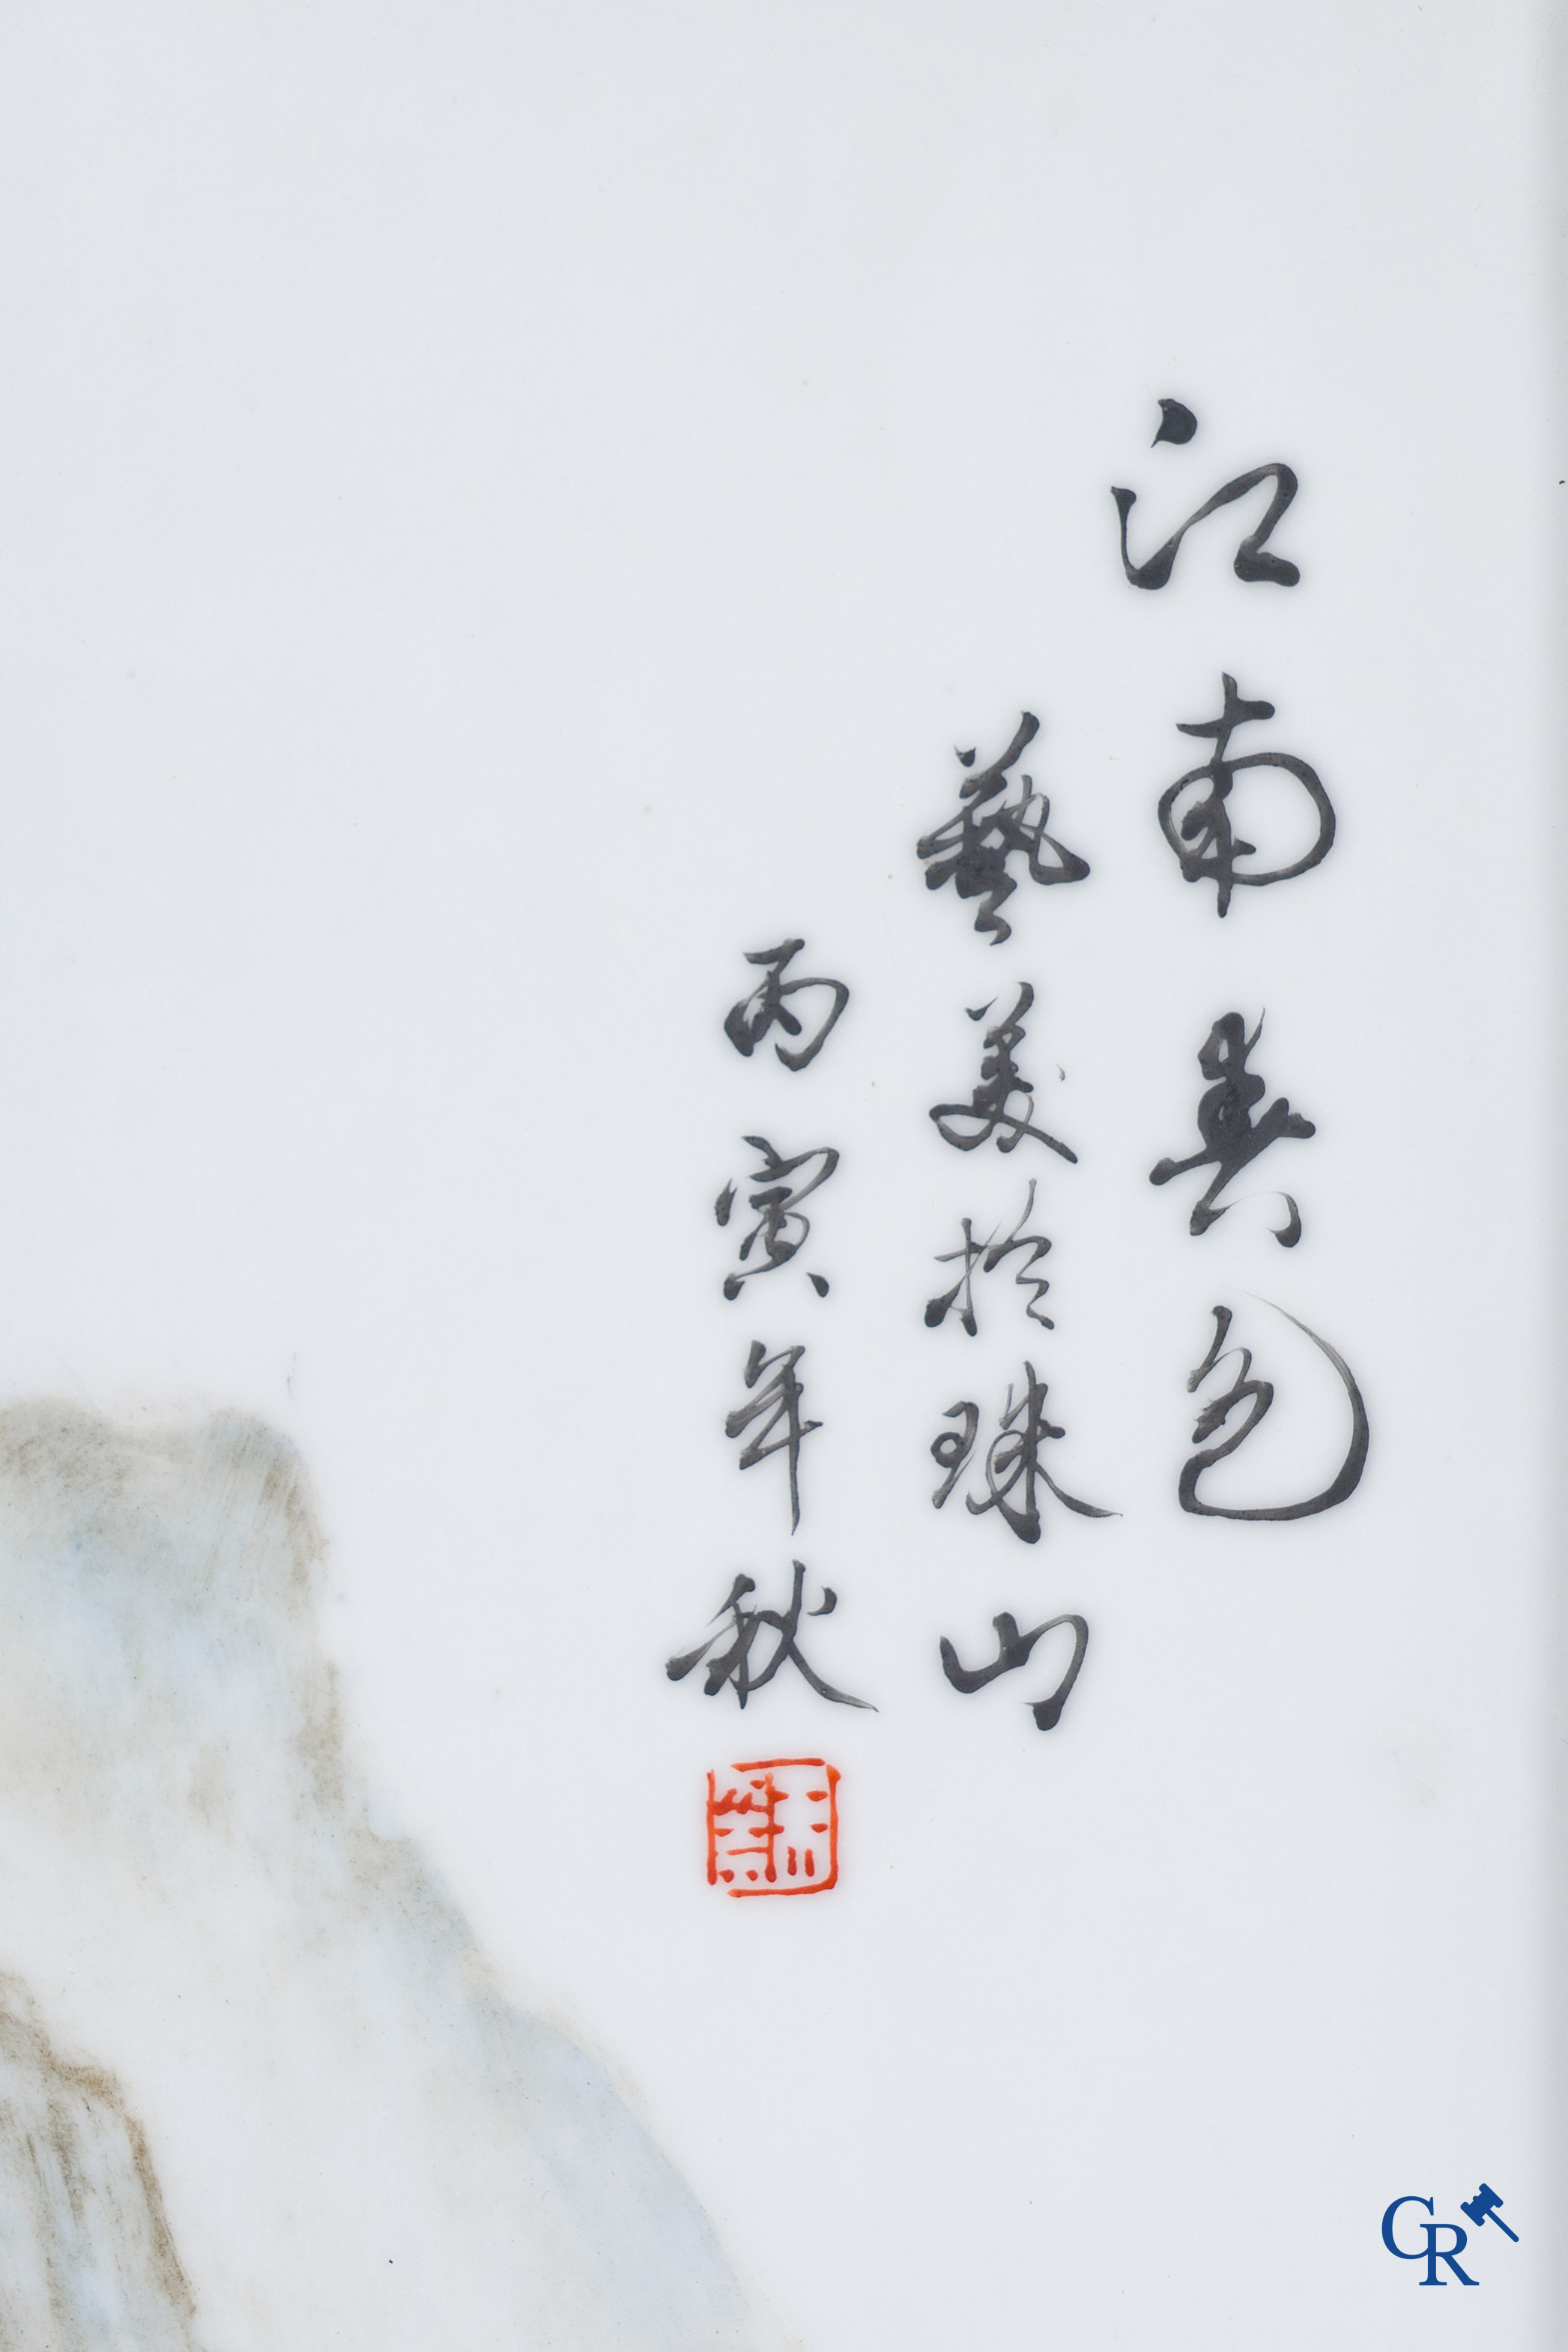 江南景色
藝美於珠山
丙寅年秋
CR